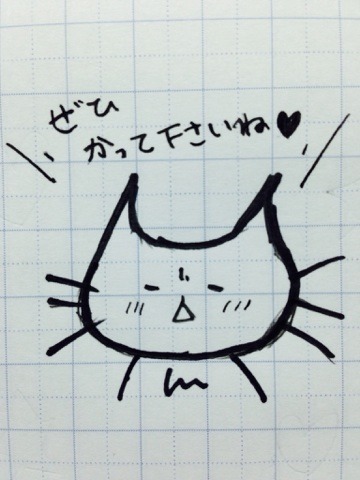 ぜひ
かって下さいね♥